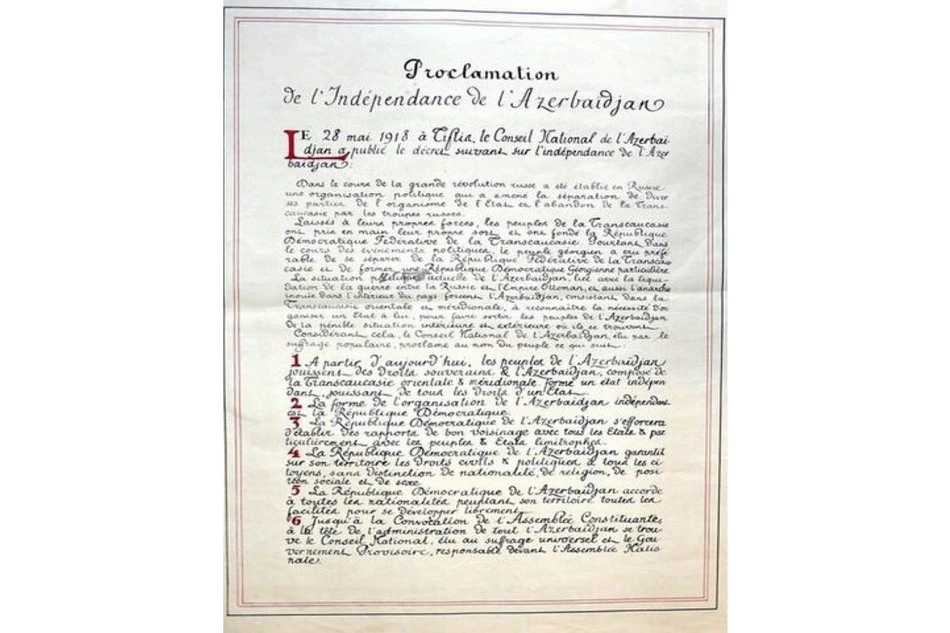 Proclamation
de l'Indépendance de l'Azerbaïdjan
LE 28 mai 1918 à Tiflis, le Conseil National de l'Azerbaï
djan a publié le décret suivant sur l'indépendance de l'Azer
baïdjan :
Dans le cours de la grande révolution russe a été établie en Russie
une organisation politique qui a amené la séparation de diver
ses parties de l'organisme de l'Etat et l'abandon de la Trans-
caucasie par les troupes russes.
Laissés à leurs propres forces, les peuples de la Transcaucasie
ont pris en main leur propre sort et ont fondé la République
Démocratique Fédérative de la Transcaucasie. Pourtant dans
le cours des événements politiques, le peuple géorgien a cru préfé
rable de se séparer de la République Fédérative de la Transcau
casie et de former une République Démocratique Géorgienne particulière
La situation politique actuelle de l'Azerbaïdjan, lié avec la liqui-
dation de la guerre entre la Russie et l'Empire Ottoman, et aussi l'anarchie
inouïe dans l'intérieur du pays forcent l'Azerbaïdjan, consistant dans la
Transcaucasie orientale et méridionale, à reconnaître la nécessité d'or
ganiser un Etat à lui, pour faire sortir les peuples de l'Azerbaïdjan
de la pénible situation intérieure et extérieure où ils se trouvent.
Considérant cela, le Conseil National de l'Azerbaïdjan, élu par le
suffrage populaire, proclame au nom du peuple ce qui suit :
1 A partir d'aujourd'hui, les peuples de l'Azerbaïdjan
jouissent des Droits souverains & l'Azerbaïdjan, composé de
la Transcaucasie orientale & méridionale forme un état indépen
dant, jouissant de tous les Droits d'un Etat.
2 La forme de l'organisation de l'Azerbaïdjan indépendant
est la République Démocratique.
3 La République Démocratique de l'Azerbaïdjan s'efforcera
d'établir des rapports de bon voisinage avec tous les Etats & par
ticulièrement avec les peuples & Etats limitrophes.
4 La République Démocratique de l'Azerbaïdjan garantit
sur son territoire les Droits civils & politiques à tous les ci
toyens, sans distinction de nationalité, de religion, de posi
tion sociale et de sexe.
5 La République Démocratique de l'Azerbaïdjan accorde
à toutes les nationalités peuplant son territoire toutes les
facilités pour se développer librement.
6 Jusqu'à la Convocation de l'Assemblée Constituante,
à la tête de l'administration de tout l'Azerbaïdjan se trou
ve le Conseil National, élu au suffrage universel et le Gou
vernement Provisoire, responsable devant l'Assemblée Natio
nale.